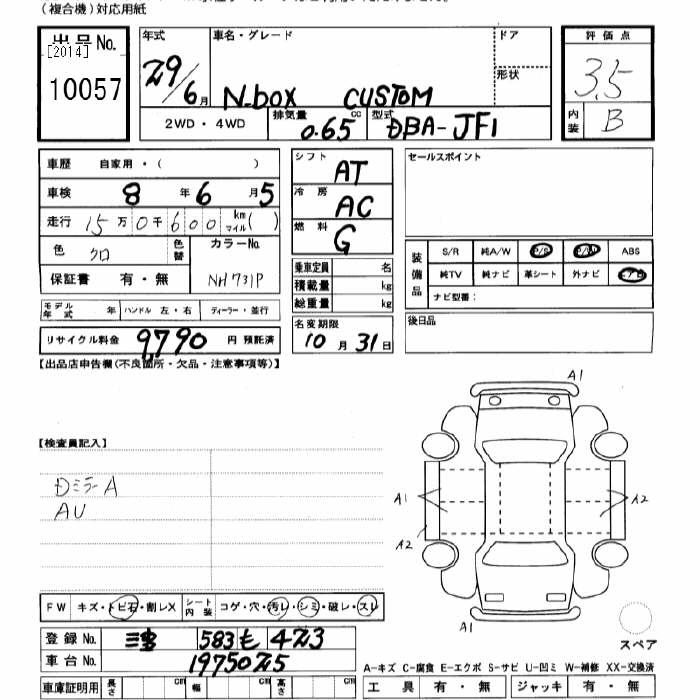 (複合機)対応用紙
出品No. [2014] 10057
年式 29/6月
車名・グレード N-box CUSTOM
ドア
形状
2WD・4WD
排気量 0.65 cc
型式 DBA-JF1
評価点 3.5
内装 B
車歴 自家用・( )
車検 8年6月5
走行 15万0千600km マイル( )
色 クロ
色替
カラーNo. NH731P
保証書 有・無
モデル年式 年 ハンドル 左・右 ディーラー・並行
リサイクル料金 9,790 円 預託済
シフト AT
冷房 AC
燃料 G
乗車定員 名
積載量 kg
総重量 kg
名変期限 10月31日
セールスポイント
装備品 S/R 純A/W P/S P/W ABS
純TV 純ナビ 革シート 外ナビ エアB
ナビ型番:
後日品
【出品店申告欄(不良箇所・欠品・注意事項等)】
【検査員記入】
DミラーA
AU
A1
A1 A2
A2
A1
スペア
FW キズ・トビ石・割レX シート内装 コゲ・穴・汚レ・シミ・破レ・スレ
登録No. 583 も 423
車台No. 1975025
車庫証明用 長さ cm 幅 cm 高さ cm
A-キズ C-腐食 E-エクボ S-サビ U-凹ミ W-補修 XX-交換済
工具 有・無 ジャッキ 有・無